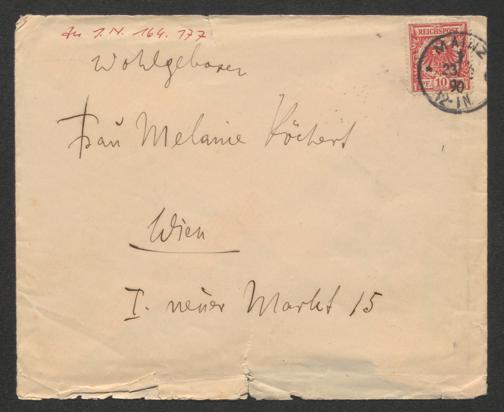 zu I.N. 169.177
Wohlgeboren
Frau Melanie Köchert
Wien
I. neuer Markt 15
REICHSPOST
10
MAINZ
90
12-1N